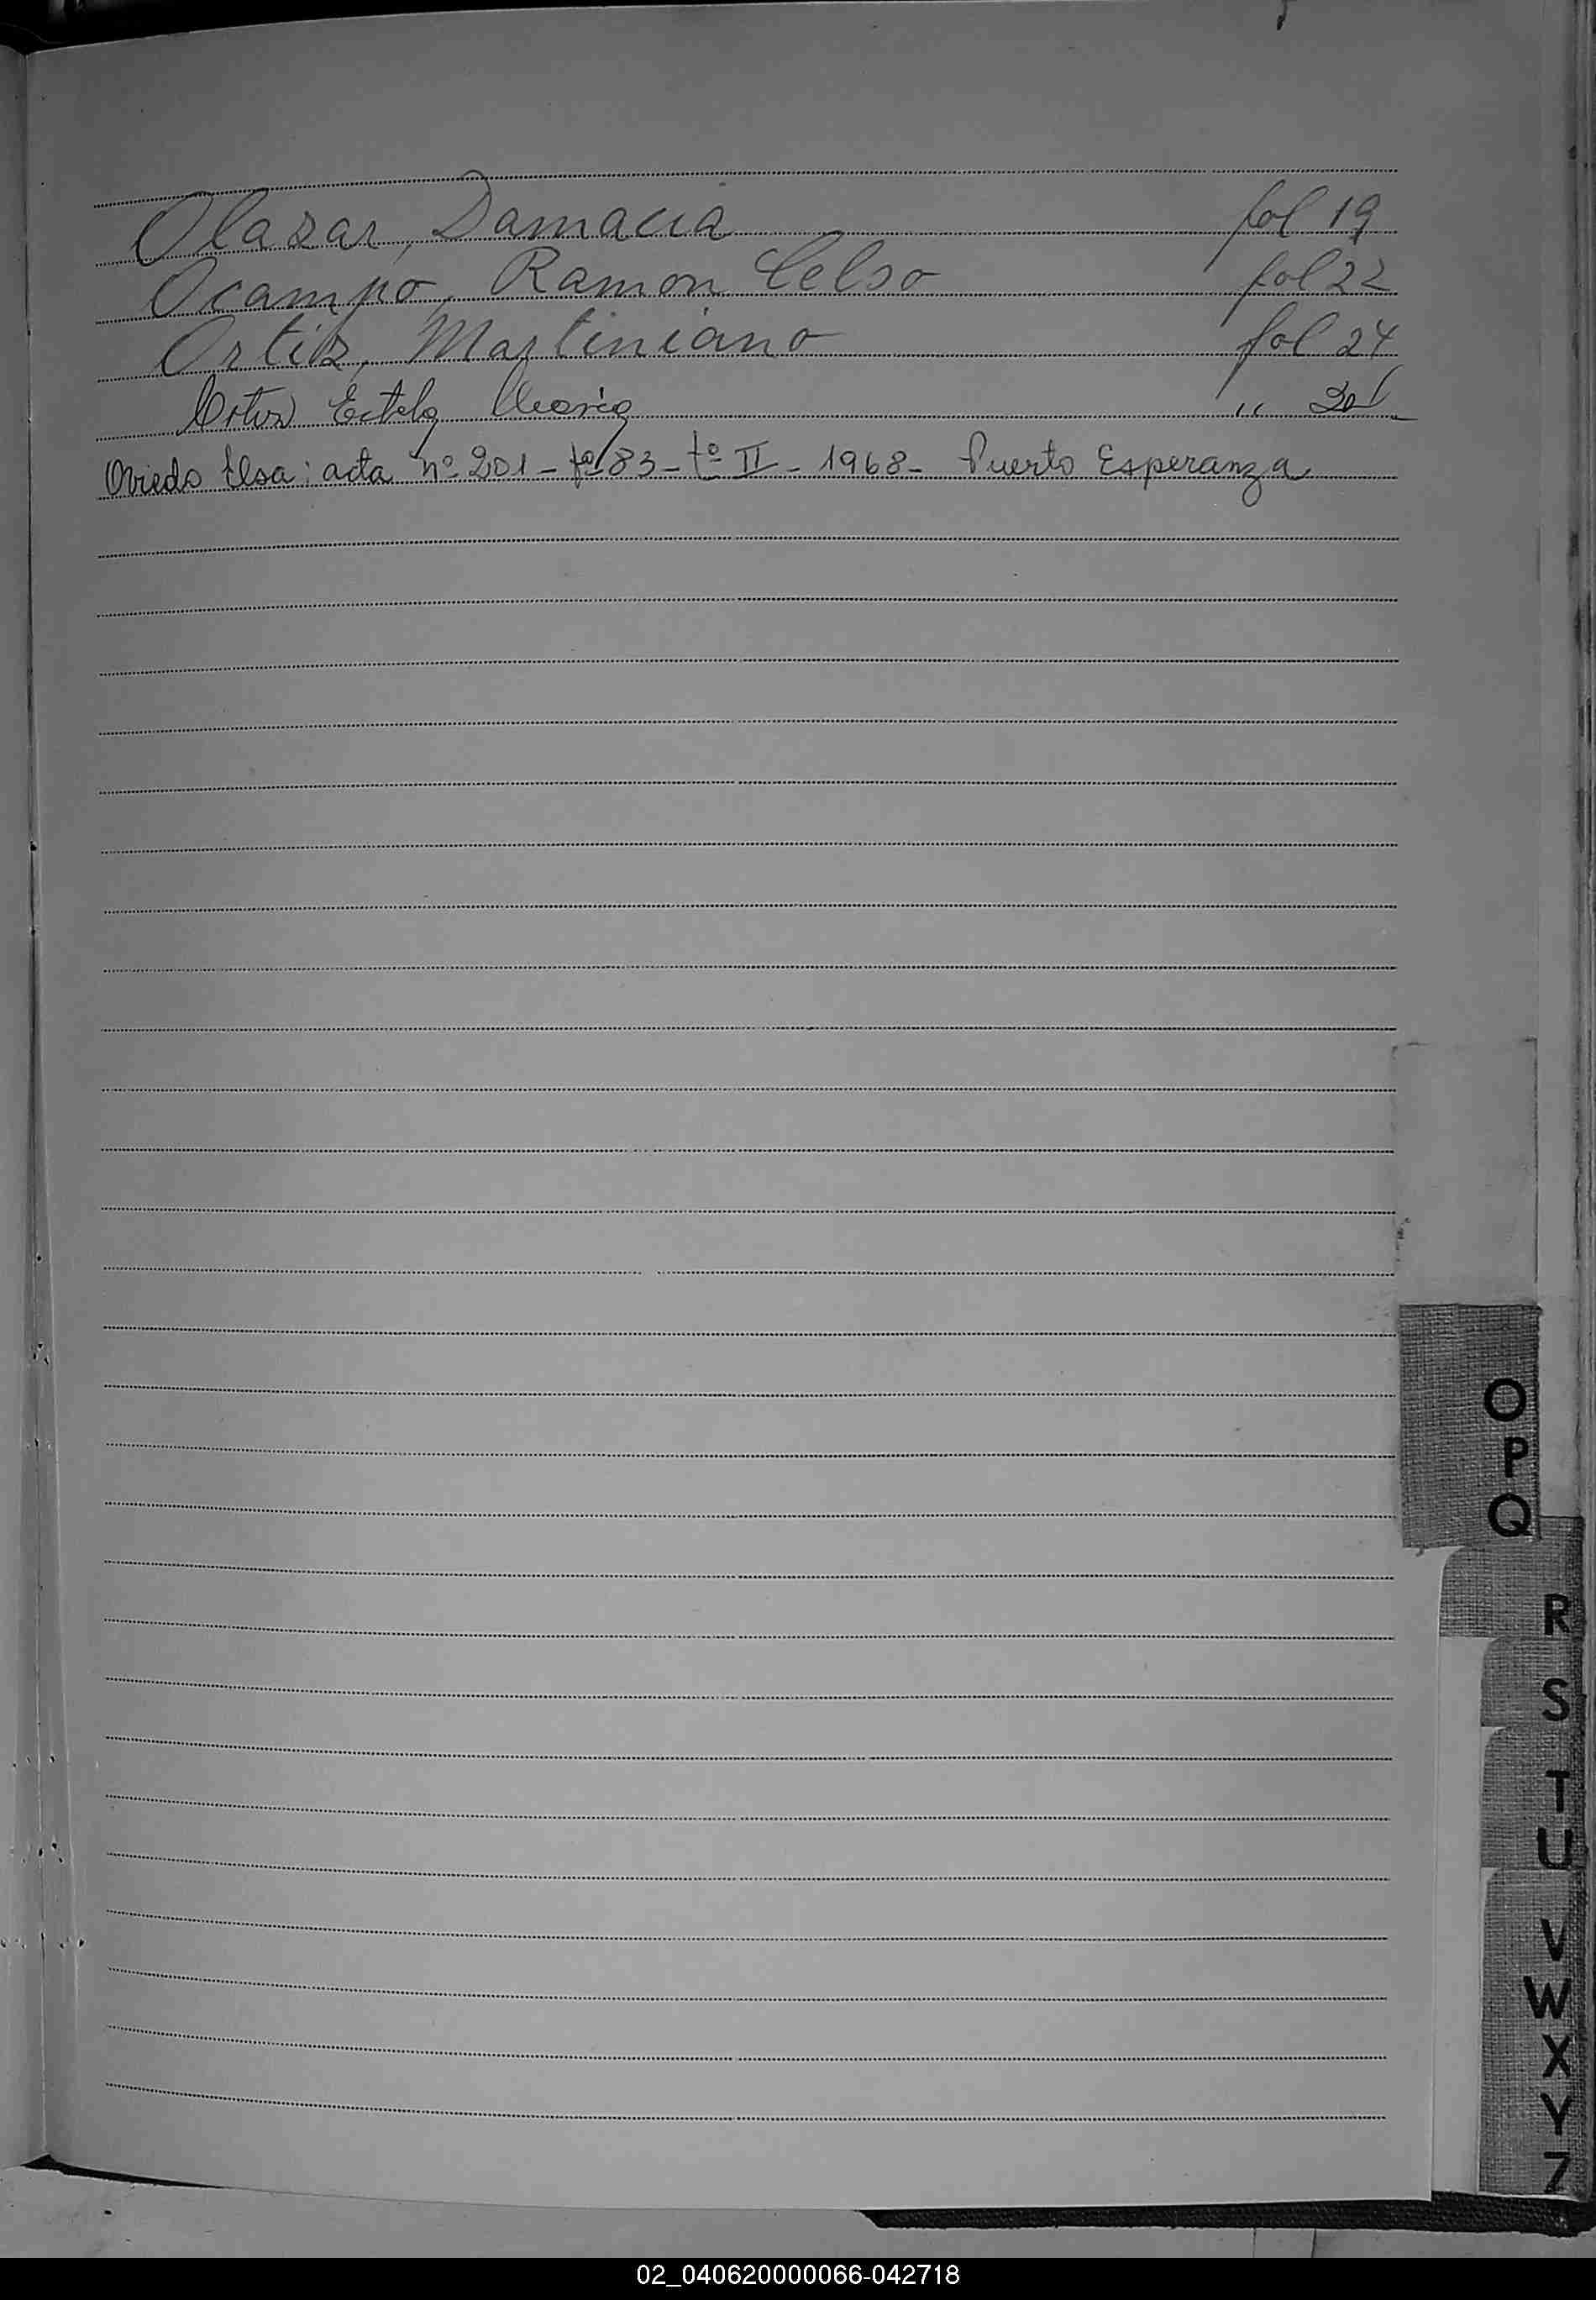 Olazar, Damacia fol 19
Ocampo, Ramon Celso fol 22
Ortiz, Martiniano fol 24
Ortiz Estela Maria "
Oviedo Elsa: acta nº 201 - fº 83 - tº II - 1968 - Puerto Esperanza
O
P
Q
R
S
T
U
V
W
X
Y
Z
02_040620000066-042718